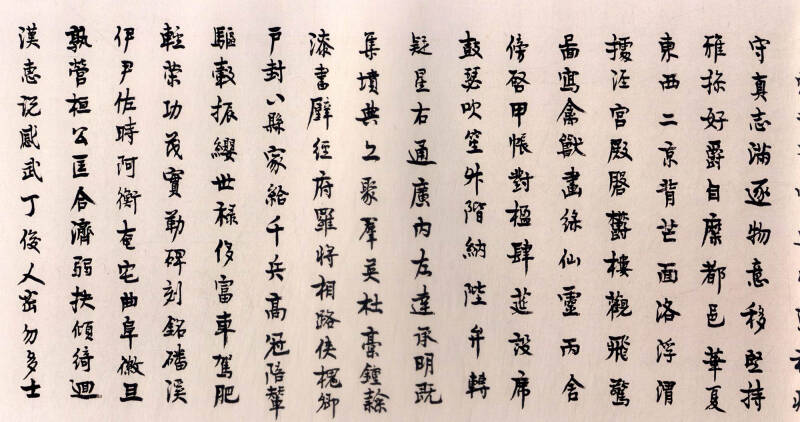 守真志滿逐物意移堅持
雅操好爵自縻都邑華夏
東西二京背芒面洛浮渭
據涇宮殿盤鬱樓觀飛驚
啚寫禽獸畫綵仙靈丙舍
傍啓甲帳對楹肆筵設席
鼓瑟吹笙升階納陛弁轉
疑星右通廣內左達承明既
集墳典亦聚羣英杜稾鍾隸
漆書壁經府羅將相路俠槐卿
戶封八縣家給千兵高冠陪輦
驅轂振纓世祿侈富車駕肥
輕策功茂實勒碑刻銘磻溪
伊尹佐時阿衡奄宅曲阜微旦
孰營桓公匡合濟弱扶傾綺迴
漢惠說感武丁俊乂密勿多士